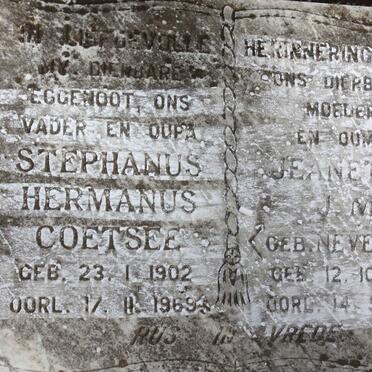 IN LIEFDEVOLLE
MY DIERBARE
EGGENOOT, ONS
VADER EN OUPA
STEPHANUS
HERMANUS
COETSEE
GEB. 23. 1. 1902
OORL. 17. 11. 1969
HERINNERING
ONS DIERB
MOEDER
EN OUM
JEANET
J. M
(GEB. NEVE
GEB. 12. 10
OORL. 14.
RUS IN VREDE